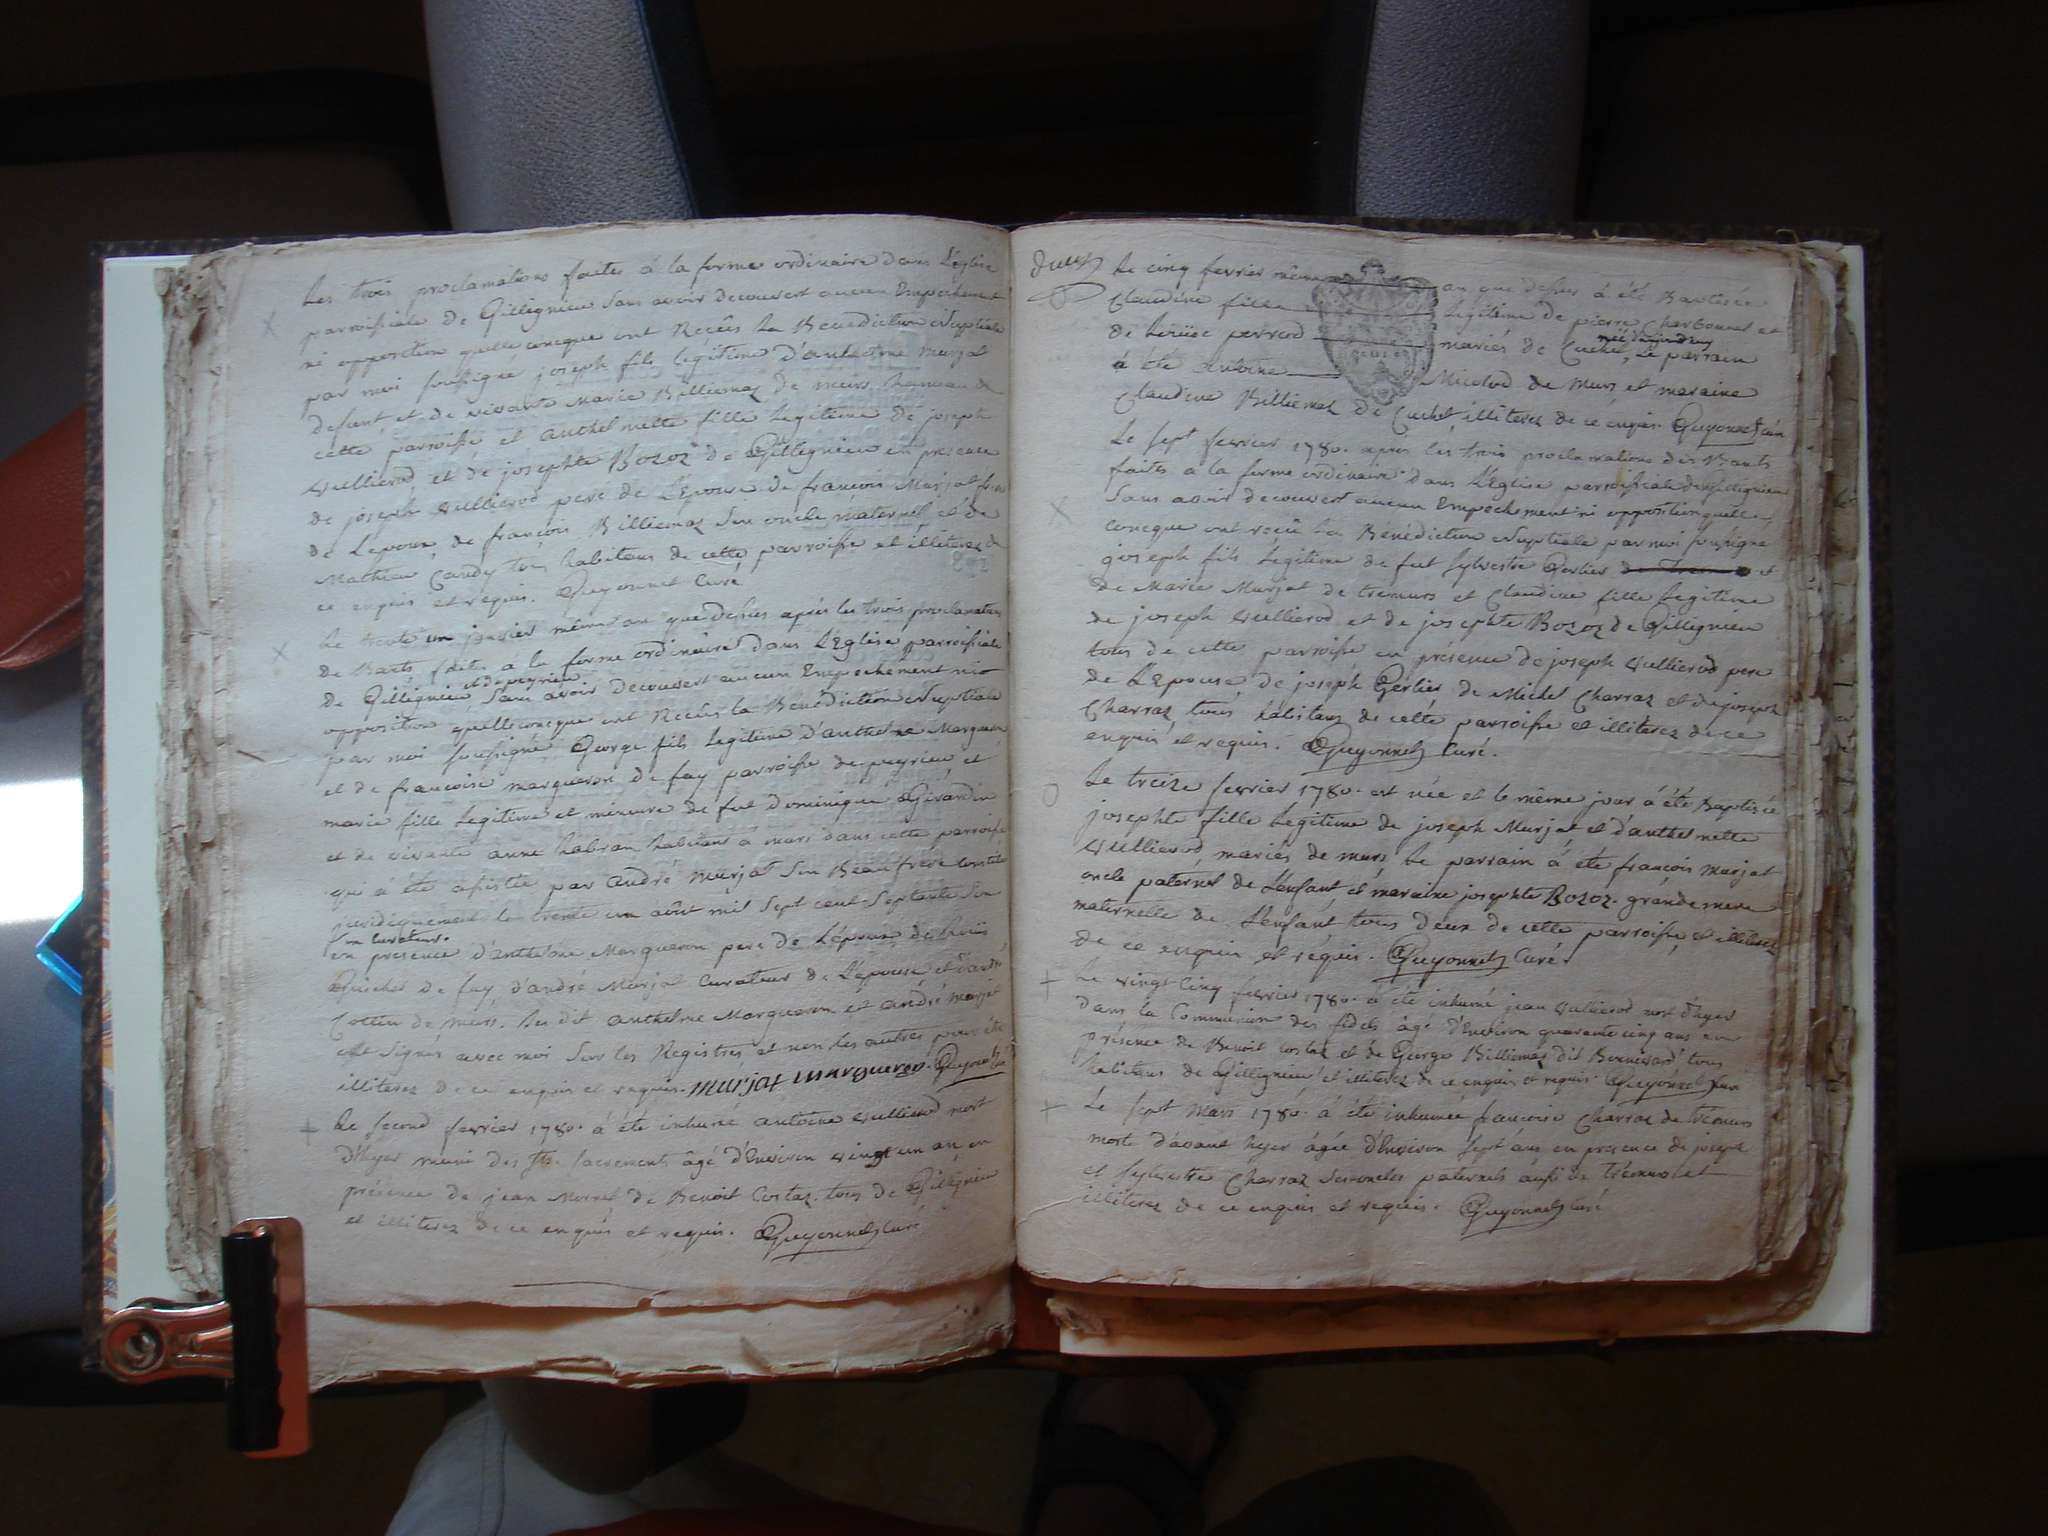 Les trois proclamations faites à la forme ordinaire dans L'église
parroissiale de Gillignieu Sans avoir decouvert aucun Empechement
ni opposition quelleconcque ont Reçûs La Benediction Nuptiale
par moi soussigné joseph fils légitime d'anthelme Murjat
defunt et de vivante Marie Billiemaz de murs hameau de
cette parroisse et anthelmette fille Legitime de joseph
Vullierod et de josephte Bozoz de Gillignieu en presence
de joseph Vullierod pere de L'epouse de françois Murjat frere
de Lepoux, de françois Billiemaz Son oncle maternel et de
Mathieu Candy tous habitans de cette parroisse et illiterez de
ce enquis et requis. Guyonnet Curé
Le trente un janvier même an que dessus après les trois proclamations
de Bants faites à la forme ordinaire dans L'Eglise parroissiale
de Gillignieu et de peyrieu Sans avoir decouvert aucun Empechement ni
opposition quelleconcque ont Reçûs la Bénédiction Nuptiale
par moi soussigné, George fils Legitime d'anthelme Margueron
et de françoise margueron de fay parroisse de peyrieu et
marie fille Legitime et mineure de feu dominique Girardin
et de vivante anne habran habitant à murs dans cette parroisse
qui à été assistée par andré Murjat Son Beaufrere constitué
juridiquement le trente un août mil Sept cent Septante Son
curateur.
en presence d'anthelme Margueron pere de L'époux de
de fay d'andré Murjat Curateur de L'épouse et
Cottin de Murs. Les dit anthelme Margueron et andré Murjat
ont Signés avec moi Sur les Registres et non les autres pour être
illiterez de ce enquis et requis. murjat margueron. Guyonnet
Le second fevrier 1780. à été inhumé antoine Vullierod mort
d'hyer muni des Sts. Sacrements âgé d'Environ vingt un an, en
présence de jean Mornel de Benoit Costaz. tous de Gillignieu
et illiterez de ce enquis et requis. Guyonnet Curé
Le cinq fevrier même an que dessus à été Baptisée
Claudine fille légitime de pierre Charbonnet et
de perrod mariés de Cuchet, née Le parrain
à été antoine Micolod de Murs et maraine
Claudine Billiemaz de Cuchet illiterez de ce enquis. Guyonnet curé
Le sept fevrier 1780. après les trois proclamations des Bants
faites à la forme ordinaire dans L'Eglise parroissiale de Gillignieu
Sans avoir decouvert aucun Empechement ni opposition quelle
concque ont reçû la Bénédiction Nuptiale par moi soussigné
joseph fils Legitime de feu Sylvestre Gerlier et
de Marie Murjat de tremurs et Claudine fille Legitime
de joseph Vullierod et de josephte Bozoz de Gillignieu
tous de cette parroisse en présence de joseph Vullierod pere
de L'Epouse de joseph Gerlier de Michel Charraz et de joseph
Charraz tous habitans de cette parroisse et illiterez de ce
enquis et requis. Guyonnet Curé.
Le treize fevrier 1780. est née et le même jour à été Baptisée
josephte fille Legitime de joseph Murjat et d'anthelmette
Vullierod, mariés de murs Le parrain à été françois murjat
oncle paternel de L'enfant, et maraine josephte Bozoz. grande mere
maternelle de L'enfant tous deux de cette parroisse et illiterez
de ce enquis et réquis. Guyonnet Curé.
Le vingt Cinq fevrier 1780. à été inhumé jean Vullierod mort d'hyer
dans la Communion des fidels âgé d'Environ quarante cinq ans en
présence de Benoit Costaz et de George Billiemaz dit Bonnivard tous
habitans de Gillignieu et illiterez de ce enquis et requis. Guyonnet Curé
Le sept Mars 1780. à été inhumée françoise Charraz de trémurs
morte d'avant hyer âgée d'Environ Sept ans en presence de joseph
et Sylvestre Charraz Ses oncles paternels aussi de trémurs et
illiterez de ce enquis et requis. Guyonnet Curé